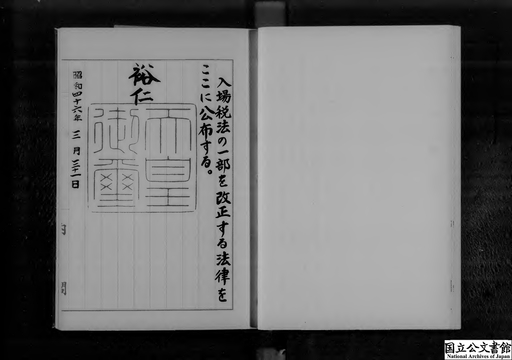 入場税法の一部を改正する法律を
ここに公布する。
裕仁
天皇
御璽
昭和四十六年 三月 三十一日
国立公文書館
National Archives of Japan